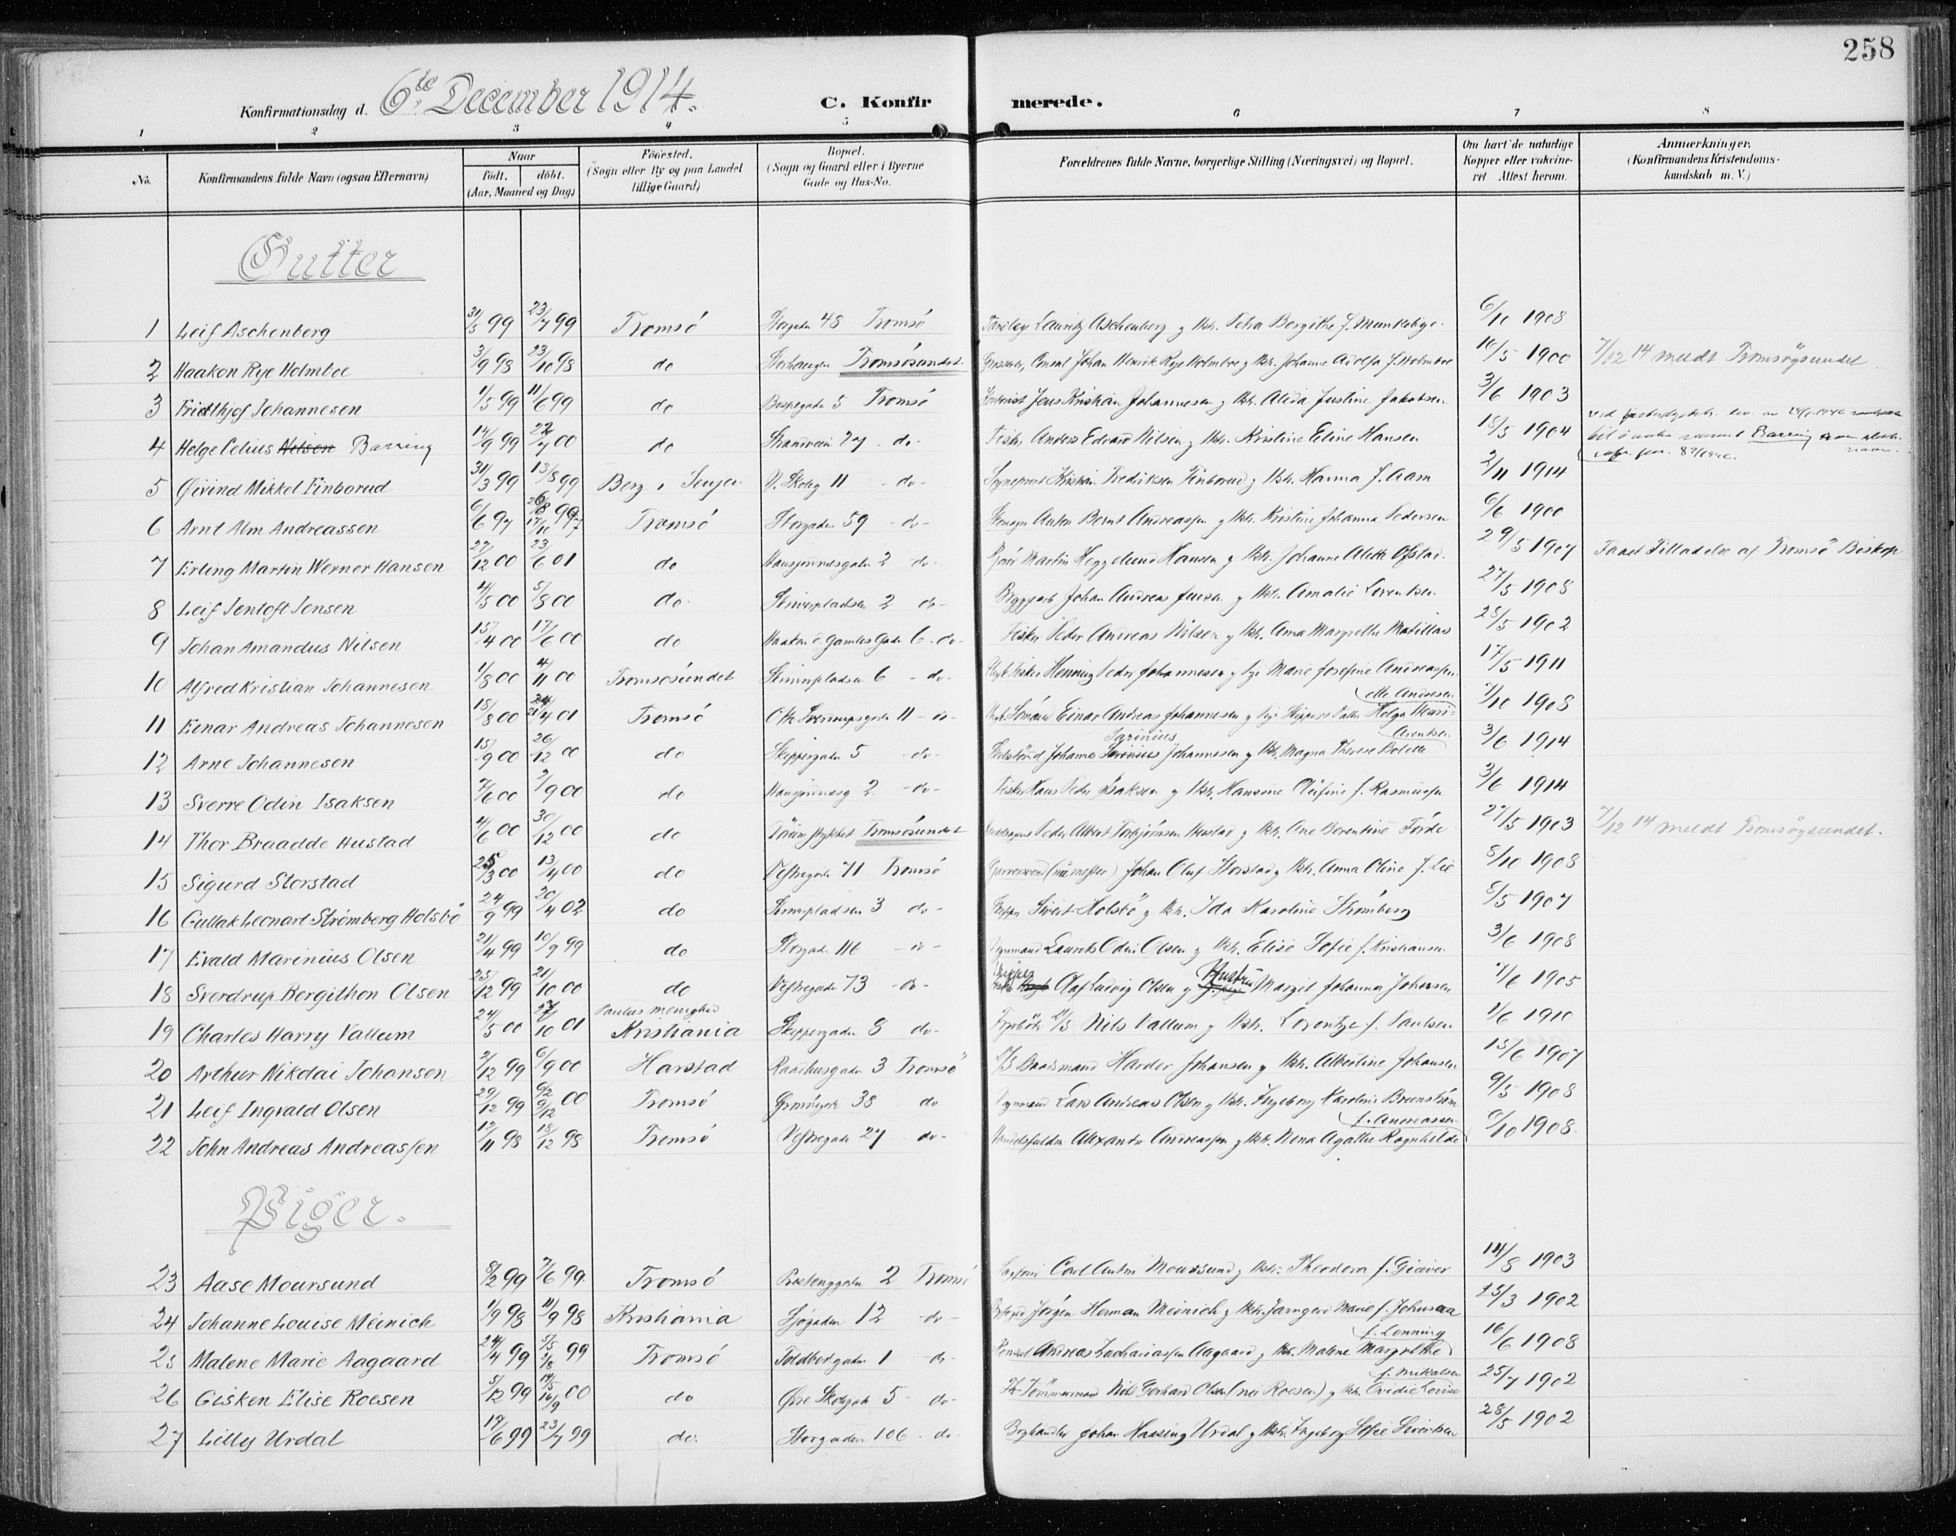 258
Konfirmationsdag d. 6te December 1914. C. Konfirmerede.
1 2 3 4 5 6 7 8
No. Konfirmandens fulde Navn (ogsaa Efternavn) Naar Født. døbt. (Aar, Maaned og Dag) Fødested. (Sogn eller By og paa Landet tillige Gaard) Bopæl. (Sogn og Gaard eller i Byerne Gade og Hus-No. Forældrenes fulde Navne, borgerlige Stilling (Næringsvei) og Bopæl. Om havt de naturlige Kopper eller vakcineret Attest herom. Anmærkninger. (Konfirmandens Kristendomskundskab m. V.)
Gutter
1 Leif Aschenberg 31/5 99 23/7 99 Tromsö Storgaden 48 Tromsö Lauritz Aschenberg g Hstr. Petra Bergithe f. Munkebye. 6/10 1908
2 Haakon Rye Holmboe 3/9 98 23/10 98 do Tromsösundet Consul Johan Henrik Rye Holmboe g Hstr. Johanne Adolfa f. Holmboe 10/5 1900 7/12 14 meldt Tromsöysundet
3 Fridthjof Johannesen 1/5 99 11/6 99 do 5 Tromsö Jens Kristian Johannesen g Hstr. Alida Justine Jakobsen 3/6 1903
4 Helge Celius Nilsen Barring 14/9 99 22/7 00 do Strandveien 27 - do - Fisker Anders Edvard Nilsen g Hstr. Kristine Eline Hansen 18/5 1904 Barring
5 Øivind Mikkel Finborud 31/3 99 13/8 99 Berg i Senjen V. Skoleg 11 - do - Sogneprest Kristian Fredriksen Finborud g Hstr. Hanna f. Aam 2/11 1914
6 Arnt Alm Andreassen 6/6 97 17/10 97 Tromsö Storgaden 59 - do - Anton Bernt Andreassen g Hstr. Kristine Johanna Pedersen 6/6 1900
7 Erling Martin Werner Hansen 27/12 00 23/6 01 do Hansjordnesgaden 2 do - Martin Heggelund Hansen g Hstr. Johanne Alette Ofstad 29/5 1907 Tilladelse af Tromsö Biskop
8 Leif Jentoft Jensen 4/5 00 5/8 00 do. Skriverpladsen 2 do - Johan Andreas Jensen g Hstr. Amalie Lorentsen 27/5 1908
9 Johan Amandus Nilsen 15/4 00 17/6 00 do Haakon d. Gamles Gade 6 - do - Fisker Peder Andreas Nilsen g Hstr. Anna Margrethe 25/5 1902
10 Alfred Kristian Johannesen 1/8 00 4/11 00 Tromsösundet Skriverpladsen 6 - do - Fisker Henning Peder Johannesen g Pige Marie Josefine Andreassen 17/5 1911
11 Einar Andreas Johannesen 18/8 00 21/4 01 Tromsö 11 - do - Sömand Einar Andreas Johannesen g Pige Helga 7/10 1908
12 Arne Johannesen 15/9 00 26/12 00 do Skippergaden 5 - do - Johannes Sörinius Johannesen g Hstr. Magna Therese Bolette Arentsen 3/6 1914
13 Sverre Odin Isaksen 7/6 00 2/9 00 do Hansjordnesg 2 - do - Fisker Hans Peder Isaksen g Hstr. Hansine Olufine f. Rasmussen 3/6 1914
14 Thor Braadde Hustad 4/6 00 30/12 00 do Tromsösundet Peder Albert Torbjörnsen Hustad g Hstr. Ane Berentine Förde 27/5 1903 7/12 14 meldt Tromsöysundet.
15 Sigurd Storstad 25/3 00 13/4 00 do Vestregade 71 Tromsö Johan Oluf Storstad g Hstr. Anna Oline f. Lie 8/10 1908
16 Gullak Leonart Strømberg Holsbö 24/9 99 20/4 02 do Skriverpladsen 3 do - Skipper Sivert Holsbö g Hstr. Ida Karoline Strömberg 8/5 1907
17 Evald Marinius Olsen 21/4 99 10/9 99 do Storgade 116 - do - Laurits Odin Olsen g Hstr. Elise Sofie f. Kristiansen 3/6 1908
18 Sverdrup Bergithon Olsen 25/12 99 21/10 00 do Vestregade 73 - do - Skipper Olaf Ludvig Olsen g Hustru Margit Johanna Johansen 7/6 1905
19 Charles Harry Vallum 24/5 00 27/10 01 Paulus menighed Kristiania Skippergaden 8 do - Nils Vallum g Hstr. Lorentze f. Paulsen 1/6 1910
20 Arthur Nikolai Johansen 2/12 99 6/9 00 Harstad Raadhusgaden 3 Tromsö Baadsmand Harder Johansen g Hstr. Albertine Johansen 15/6 1907
21 Leif Ingvald Olsen 29/12 99 00 Tromsö Grönnegade 38 do Lars Andreas Olsen g Hstr. Ingeborg Karoline 9/5 1908
22 John Andreas Andreassen 12/11 98 18/12 98 Tromsö Vestregade 27 do - Alexander Andreassen g Hstr. Nina Agathe Ragnhilde f. Andreassen 6/10 1908.
Piger.
23 Aase Moursund 8/2 99 7/6 99. Tromsö 2 Tromsö Carl Anton Moursund g Hstr. Theodora f. Giæver 14/8 1903
24 Johanne Louise Meinich 1/9 98 11/9 98 Kristiania Sjögaden 12 do - Jörgen Herman Meinich g Hstr. Jarngerd Marie f. Johnsen 23/3 1902
25 Malene Marie Aagaard 24/4 99 99 Tromsö Toldbodgaden 1 do - Konsul Andreas Zachariassen Aagaard g Hstr. Malene Margrethe f. Lonning 16/6 1908
26 Gisken Elise Roesen 5/12 99 00 do Øvre Skolegade 5 - do - Tömmermand Nils Gerhard Olsen (nu Roesen) g Hstr. Ovidie Lovise f. Mikalsen 25/7 1902
27 Lilly Urdal 17/6 99 23/7 99 do. Storgaden 106 - do - Boghandler Johan Hassing Urdal g Hstr. Ingeborg Sofie Sivertsen 28/5 1902